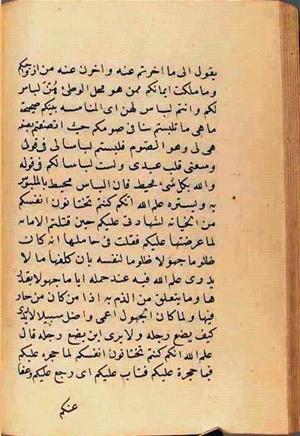 يقول الى ما اخرتم عنه واخرون عنه من ازواجكم
وما ملكت ايمانكم ممن هو محل الوطئ هن لباس
لكم وانتم لباس لهن اى المناسبة بينكم صحيحة
ما هى ما تلبستم بنا فى صومكم حيث اتصفتم بصفة
هى لى وهو الصوم فلبستم لباسا لى فى قول
وسعنى قلب عبدى ولست لباسا لكم فى قوله
والله بكل شئ محيط فان اللباس محيط بالملبوس
به ويستره علم الله انكم كنتم تختانون انفسكم
من الخيانة لشهاد فى عليكم حين قبلتم الامانة
لما عرضتها عليكم فقلت فى حاملها انه كان
ظلوما جهولا ظلوما لنفسه بان كلفها ما لا
يدرى علم الله فيه عند حمله اياها جهولا بقدر
ها وما يتعلق من الذم به اذا من كان من حار
فيها ولما كان الجهول اعمى واضل سبيلا لا يدرى
كيف يضع رجله ولا يرى اين يضع رجله قال
علم الله انكم كنتم تختانون انفسكم لما حجره عليكم
فيما حجره عليكم فتاب عليكم اى رجع عليكم وعفا
عنكم